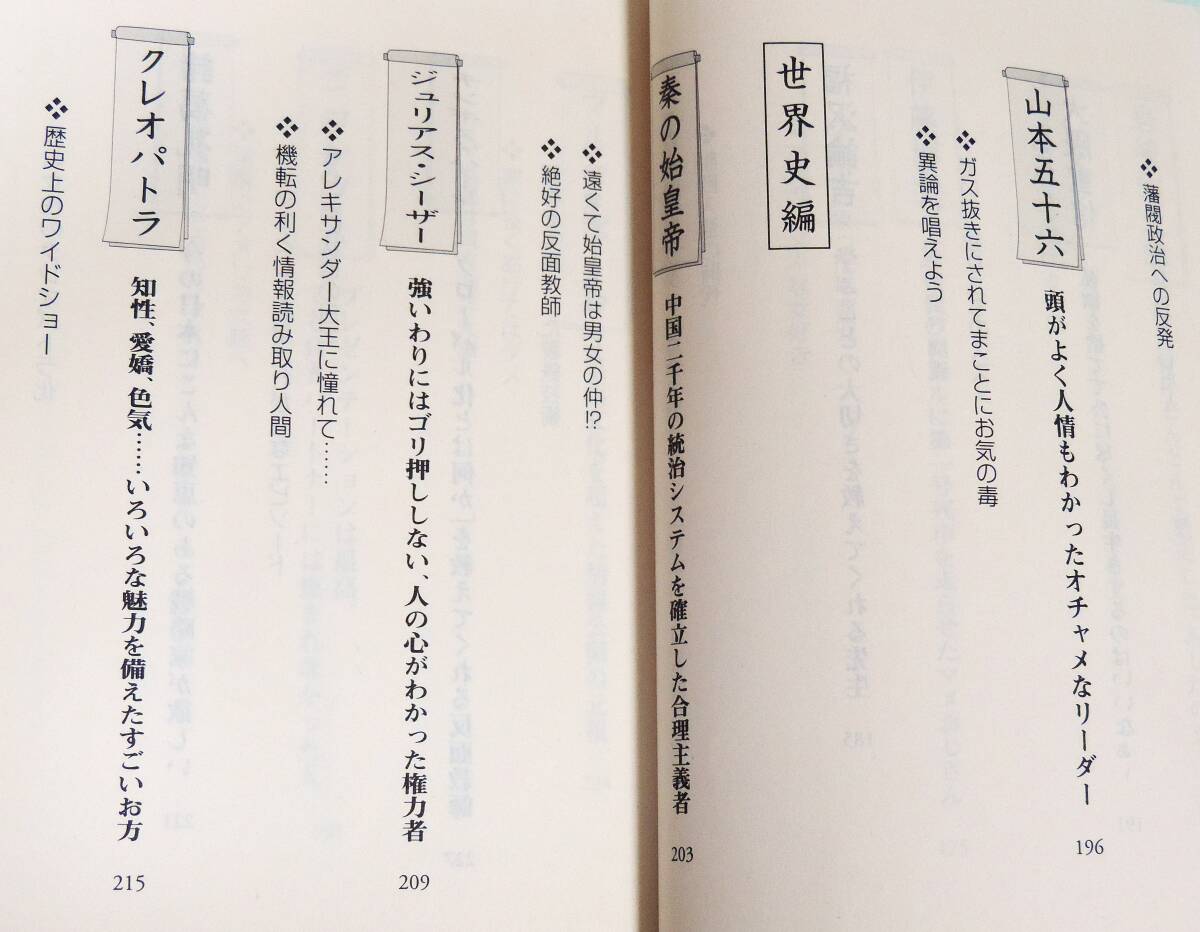 ❖藩閥政治への反発
山本五十六
頭がよく人情もわかったオチャメなリーダー
196
❖ガス抜きにされてまことにお気の毒
❖異論を唱えよう
世界史編
秦の始皇帝
中国二千年の統治システムを確立した合理主義者
203
❖遠くて始皇帝は男女の仲!?
❖絶好の反面教師
ジュリアス・シーザー
強いわりにはゴリ押ししない、人の心がわかった権力者
209
❖アレキサンダー大王に憧れて……
❖機転の利く情報読み取り人間
クレオパトラ
知性、愛嬌、色気……いろいろな魅力を備えたすごいお方
215
❖歴史上のワイドショー